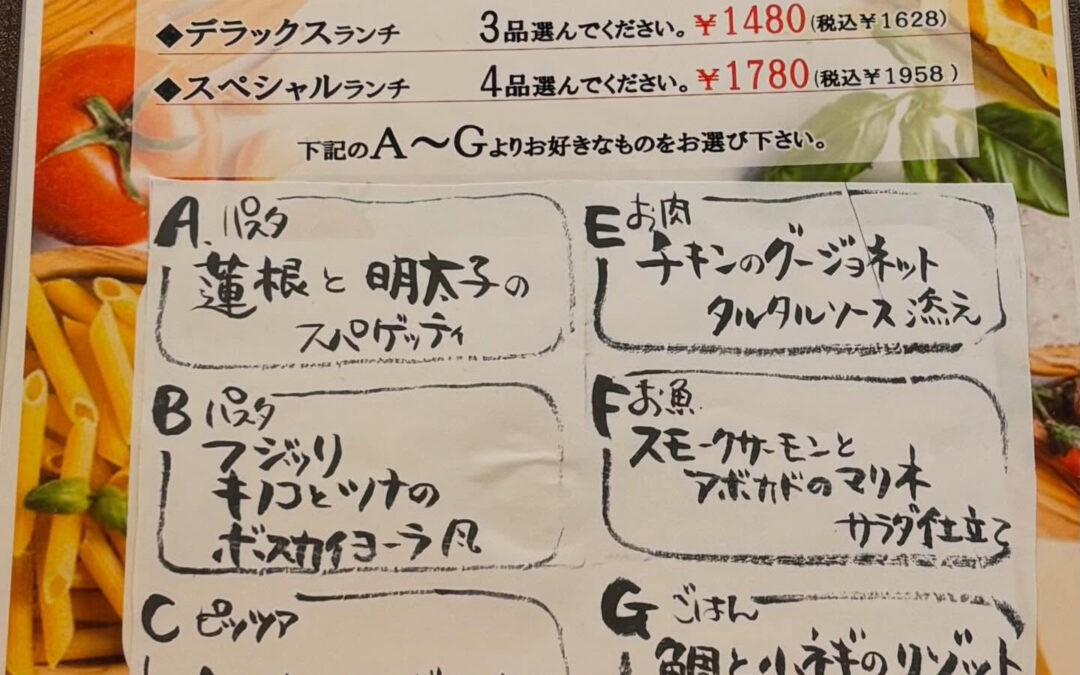 ◆デラックスランチ 3品選んでください。¥1480(税込¥1628)
◆スペシャルランチ 4品選んでください。¥1780(税込¥1958 )
下記のA〜Gよりお好きなものをお選び下さい。
A. パスタ
蓮根と明太子の
スパゲッティ
B パスタ
フジッリ
キノコとツナの
ボスカイヨーラ風
C ピッツァ
E お肉
チキンのグージョネット
タルタルソース添え
F お魚
スモークサーモンと
アボカドのマリネ
サラダ仕立て
G ごはん
鯛と小ネギのリゾット